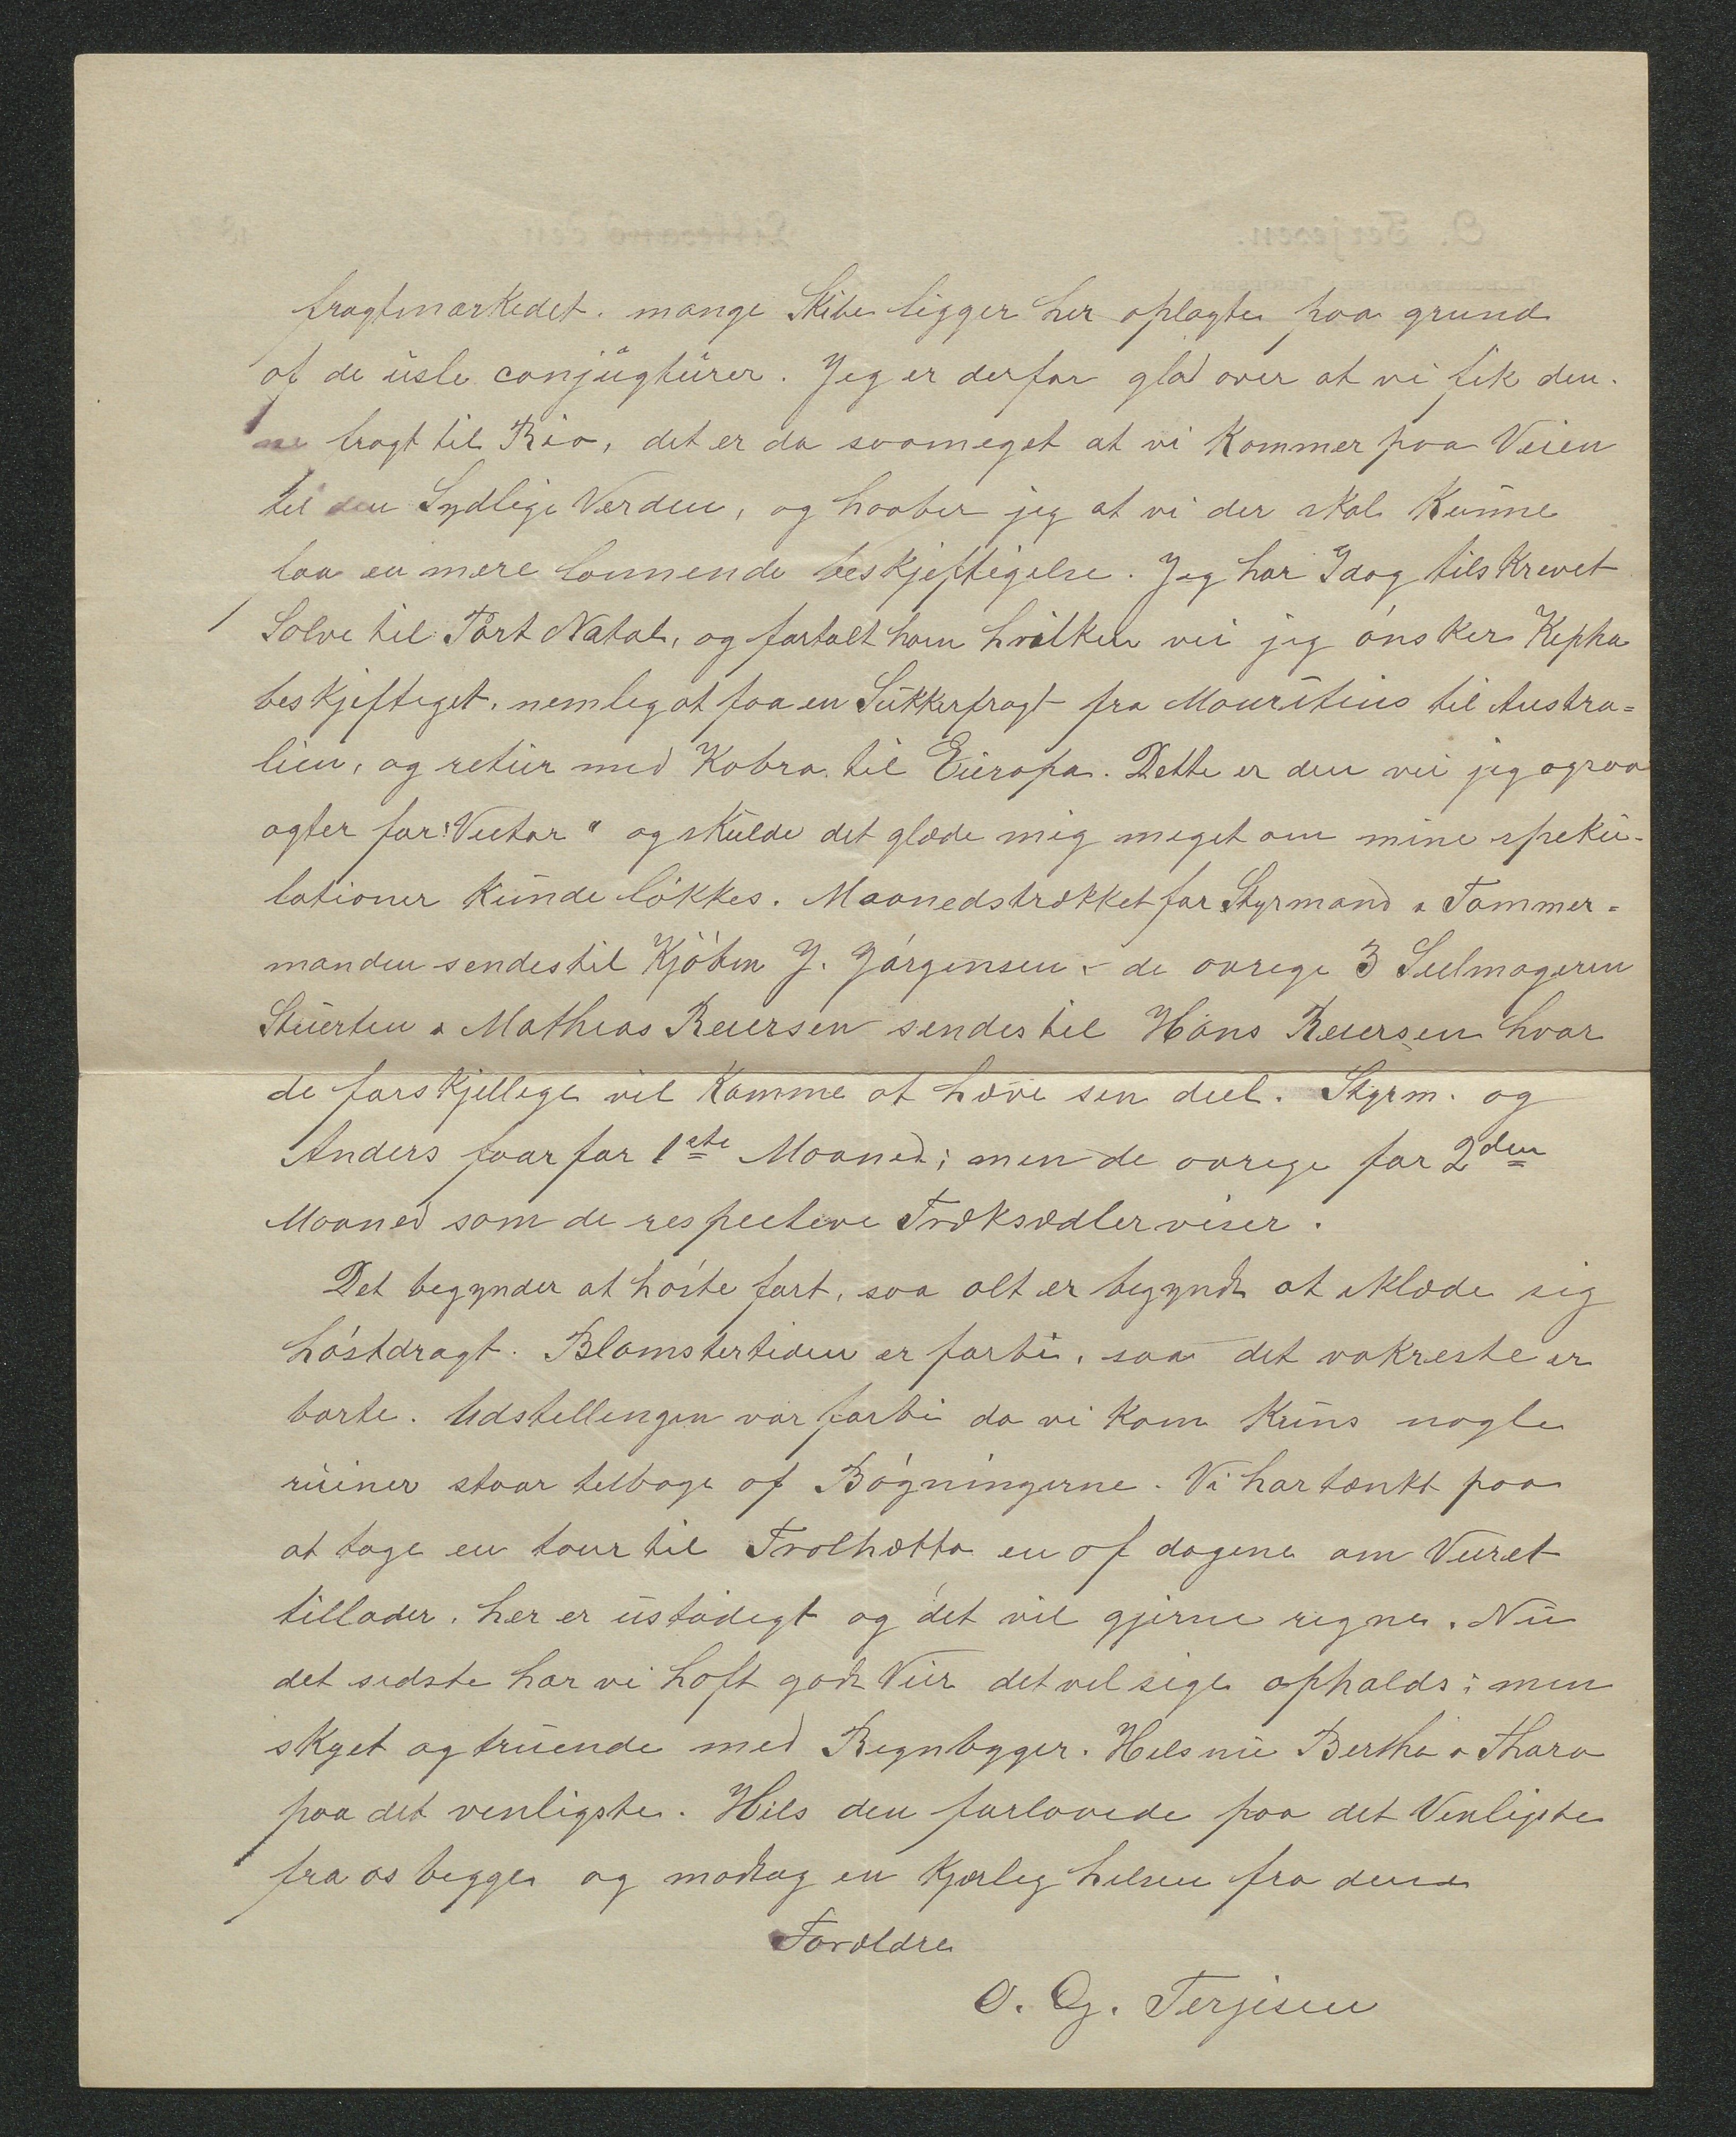 fragtmarkedet. mange Skibe ligger her oplagte paa grund
af de usle conjugturer. Jeg er derfor glad over at vi fik den-
ne fragt til Rio, det er da saameget at vi kommer paa Veien
til den Sydlige Verden, og haaber jeg at vi der skal kunne
faa en mere lønnende beskjeftigelse. Jeg har Idag tilskrevet
Solve til Port Natal, og fortalt ham hvilken vei jeg ønsker Kepha
beskjeftiget. nemlig at faa en Sukkerfragt fra Mouritius til Austra=
lien, og retur med Kobra til Europa. Dette er den vei jeg ogsaa
agter for "Victor" og skulde det glæde mig meget om mine speku-
lationer kunde løkkes. Maanedstrækket for Styrmand & Tømmer=
manden sendes til Kjøbm J. Jørgensen - de øvrige 3 Seilmageren
Stuerten & Mathias Reiersen sendes til Hans Reiersen hvor
de forskjellige vil komme at hæve sin deel. Styrm. og
Anders faar for 1ste Maaned; men de øvrige for 2den
Maaned som de respective Træksedler viser.
Det begynder at høste fort, saa alt er begyndt at iklæde sig
høstdragt. Blomstertiden er forbi, saa det vakreste er
borte. Udstellingen var forbi da vi kom kuns nogle
ruiner staar tilbage af Bøgningerne. Vi har tænkt paa
at tage en tour til Trolhætta en af dagene om Veiret
tillader. her er ustadigt og det vil gjerne regne. Nu
det sidste har vi haft godt Veir det vil sige ophalds; men
skyet og truende med Regnbyger. Hils nu Bertha & Thora
paa det venligste. Hils den forlovede paa det Venligste
fra os begge og modtag en kjærlig hilsen fra dine
Forældre
O. Og. Terjesen
O. Terjesen.
Lillesand den
18